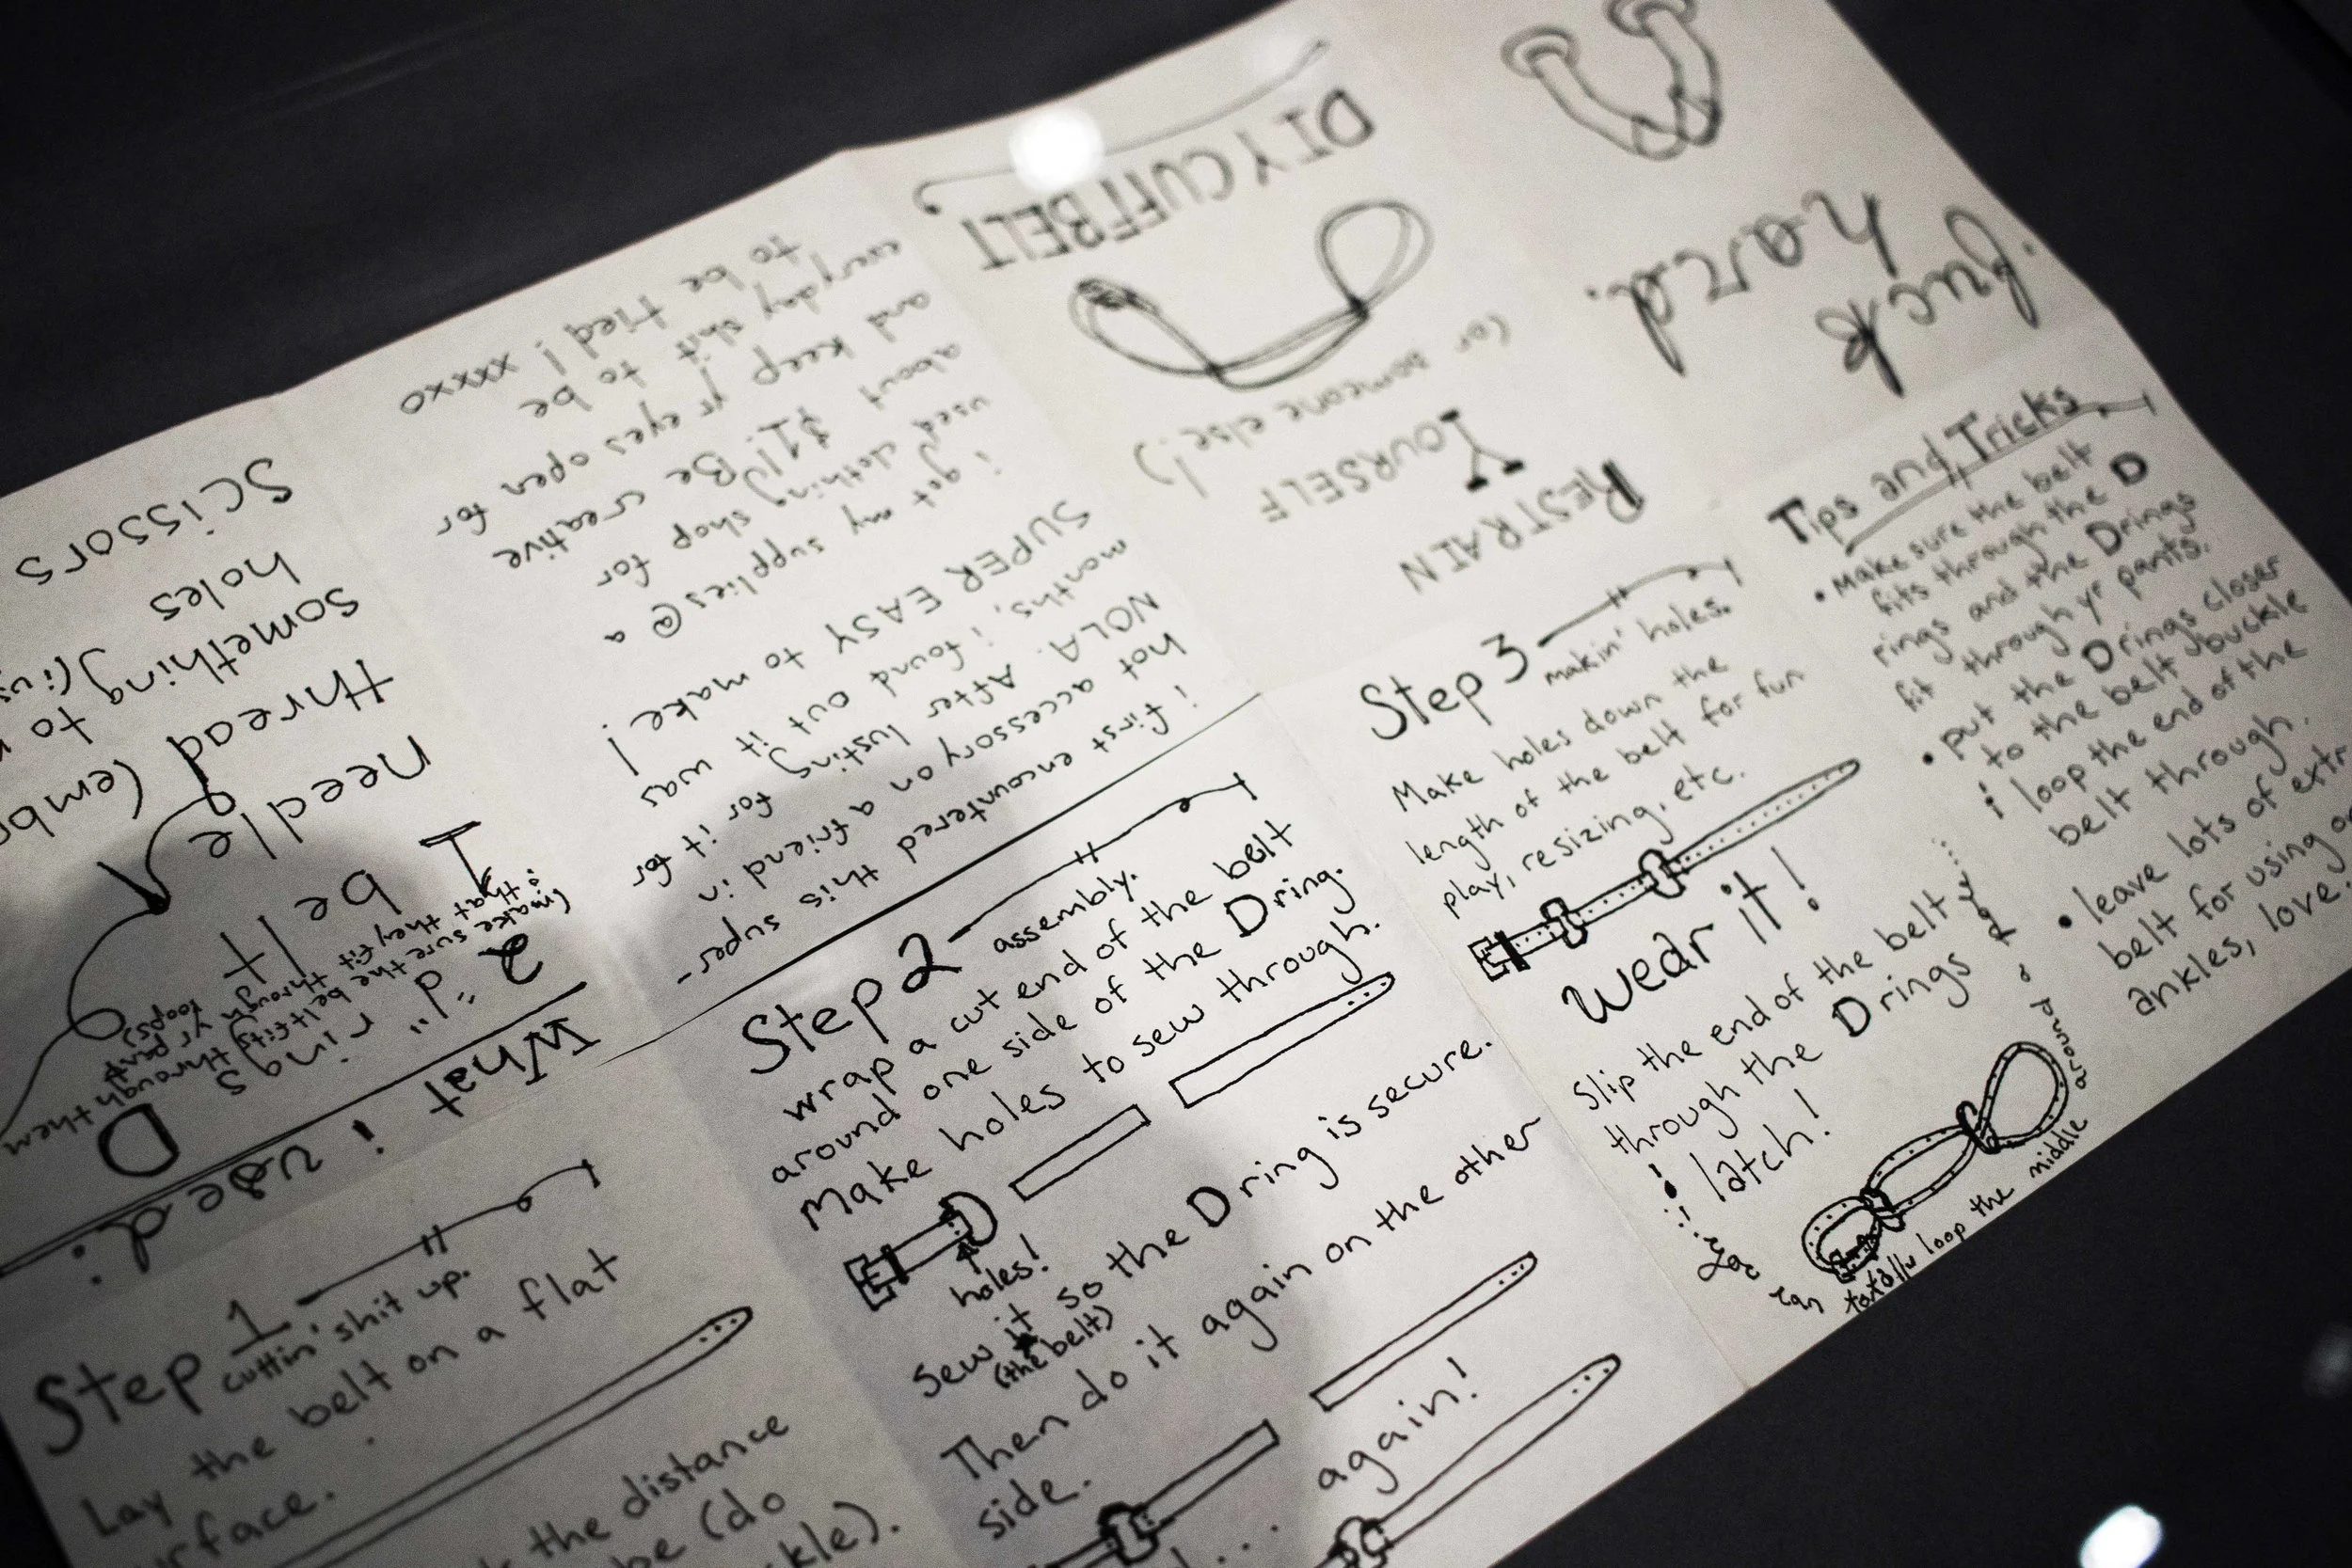 DIY CUFF BELT
(or someone else!)
YOURSELF
RESTRAIN
fuck
hard.
i first encountered this super-
hot accessory on a friend in
NOLA. After lusting for it for
months, i found out it was
SUPER EASY to make!
i got my supplies @ a
used clothing shop for
about $1! Be creative
and keep yr eyes open for
everyday shit to be
to be tied! xxxxo
What i used:
2 "d" rings
(make sure the belt fits through them
& that they fit through yr pant
loops)
D
1 belt
needle
thread (embr
something
holes
scissors
Step 1
cuttin' shit up.
Lay the belt on a flat
the distance
be (do
Step 2
assembly.
wrap a cut end of the belt
around one side of the D ring.
Make holes to sew through.
holes!
Sew it so the D ring is secure.
(the belt)
Then do it again on the other
side.
again!
Step 3
makin' holes.
Make holes down the
length of the belt for fun
play, resizing, etc.
Wear it!
Slip the end of the belt
through the D rings
& latch!
can totally loop the middle
around
Tips and Tricks
• Make sure the belt
fits through the D
rings and the D rings
fit through yr pants.
• put the D rings closer
to the belt buckle
& loop the end of the
belt through.
• leave lots of extr
belt for using o
ankles, love.